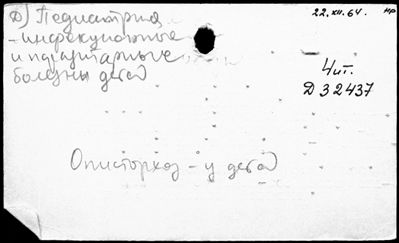 д) Педиатрия
22.XII.64.
нр
- инфекционные
и паразитарные
болезни детей
Чит.
Д 32437
Описторхоз - у детей